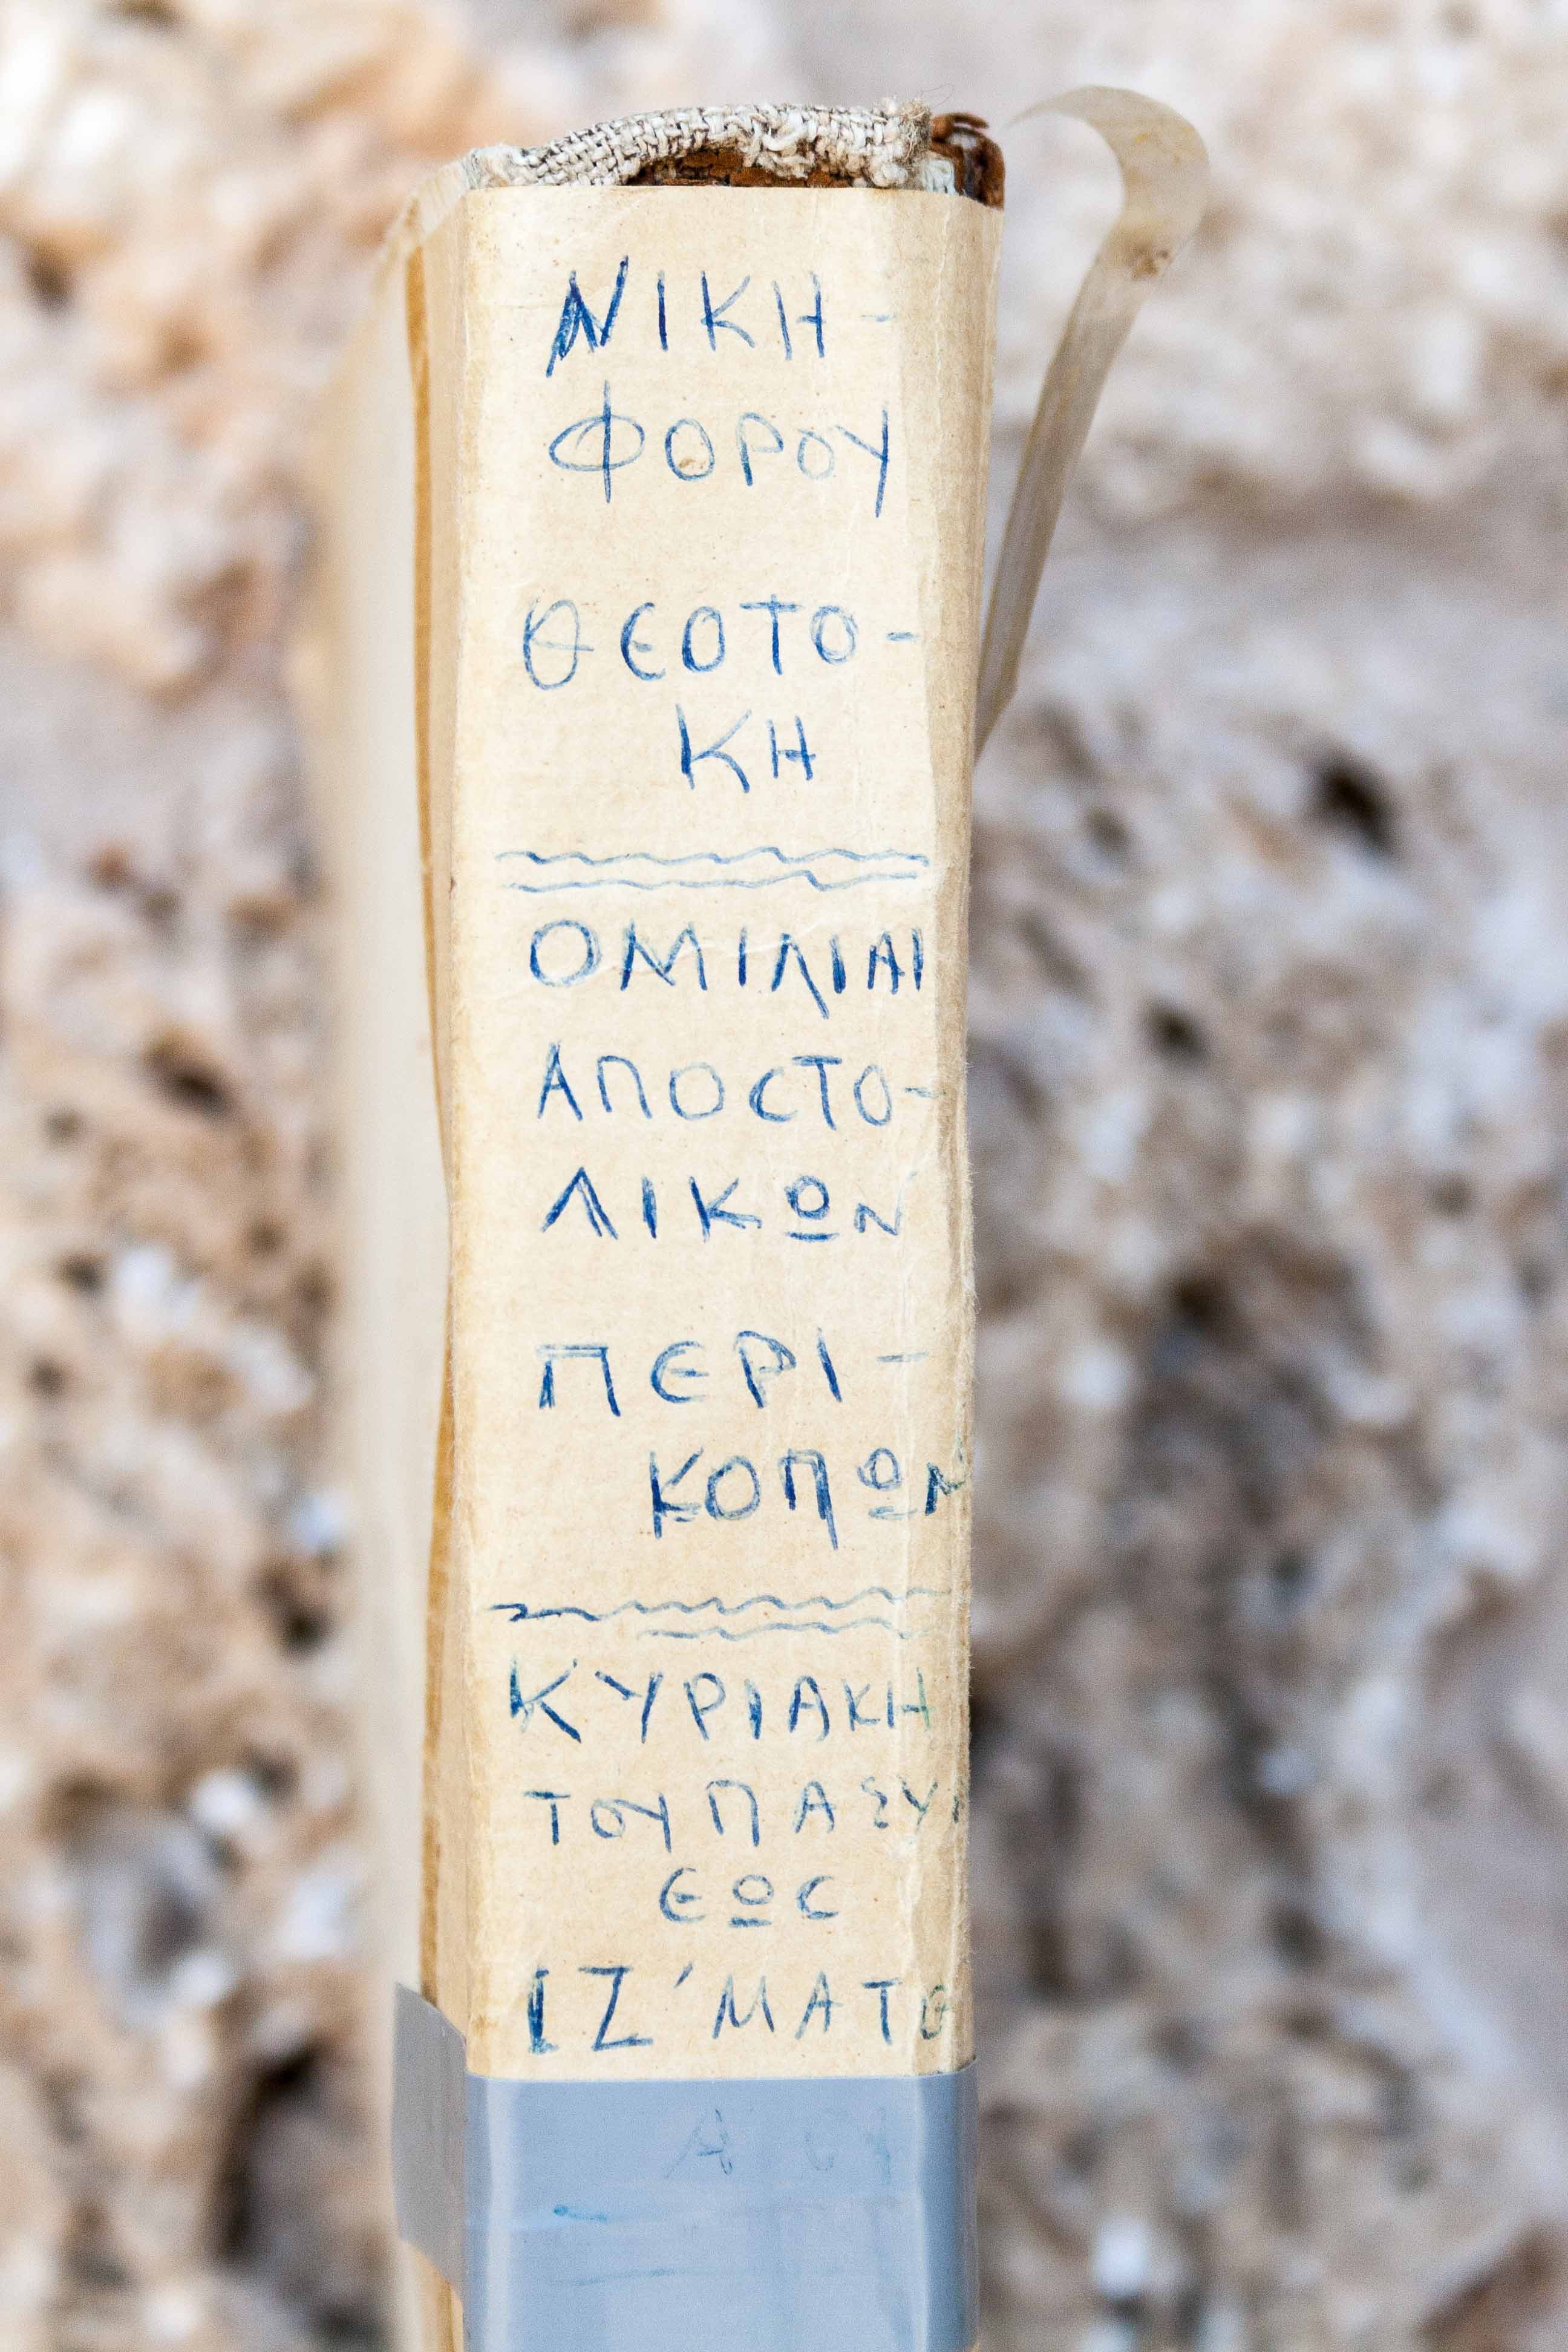 ΝΙΚΗ-
ΦΟΡΟΥ
ΘΕΟΤΟ-
ΚΗ
ΟΜΙΛΙΑΙ
ΑΠΟCΤΟ-
ΛΙΚΩΝ
ΠΕΡΙ-
ΚΟΠΩΝ
ΚΥΡΙΑΚΗ
ΤΟΥ
ΕΩC
ΙΖ΄ΜΑΤΘ